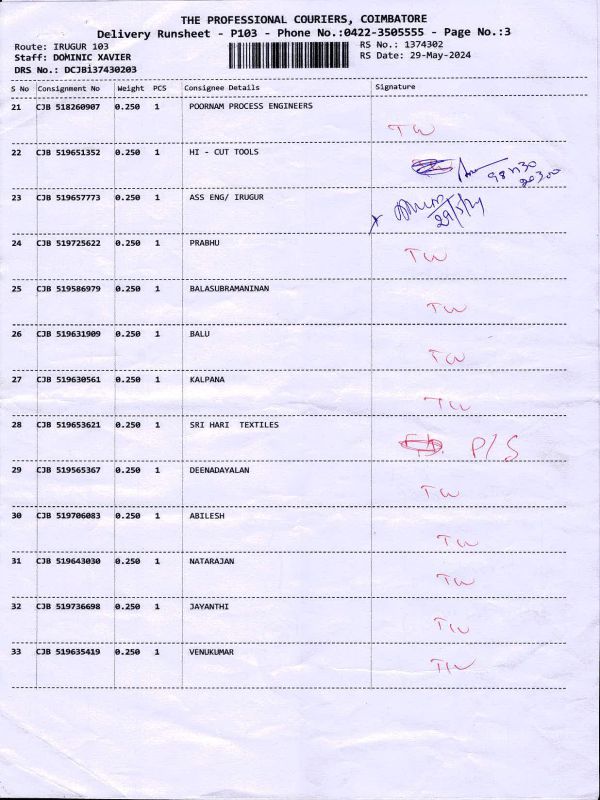 THE PROFESSIONAL COURIERS, COIMBATORE
Delivery Runsheet - P103 - Phone No.:0422-3505555 - Page No.:3
Route: IRUGUR 103 RS No.: 1374302
Staff: DOMINIC XAVIER RS Date: 29-May-2024
DRS No.: DCJBi37430203
S No Consignment No Weight PCS Consignee Details Signature
21 CJB 518260907 0.250 1 POORNAM PROCESS ENGINEERS
TW
22 CJB 519651352 0.250 1 HI - CUT TOOLS
23 CJB 519657773 0.250 1 ASS ENG/ IRUGUR
29/5/24
24 CJB 519725622 0.250 1 PRABHU
TW
25 CJB 519586979 0.250 1 BALASUBRAMANINAN
TW
26 CJB 519631909 0.250 1 BALU
TW
27 CJB 519630561 0.250 1 KALPANA
TW
28 CJB 519653621 0.250 1 SRI HARI TEXTILES
P/S
29 CJB 519565367 0.250 1 DEENADAYALAN
TW
30 CJB 519706083 0.250 1 ABILESH
TW
31 CJB 519643030 0.250 1 NATARAJAN
TW
32 CJB 519736698 0.250 1 JAYANTHI
TW
33 CJB 519635419 0.250 1 VENUKUMAR
TW